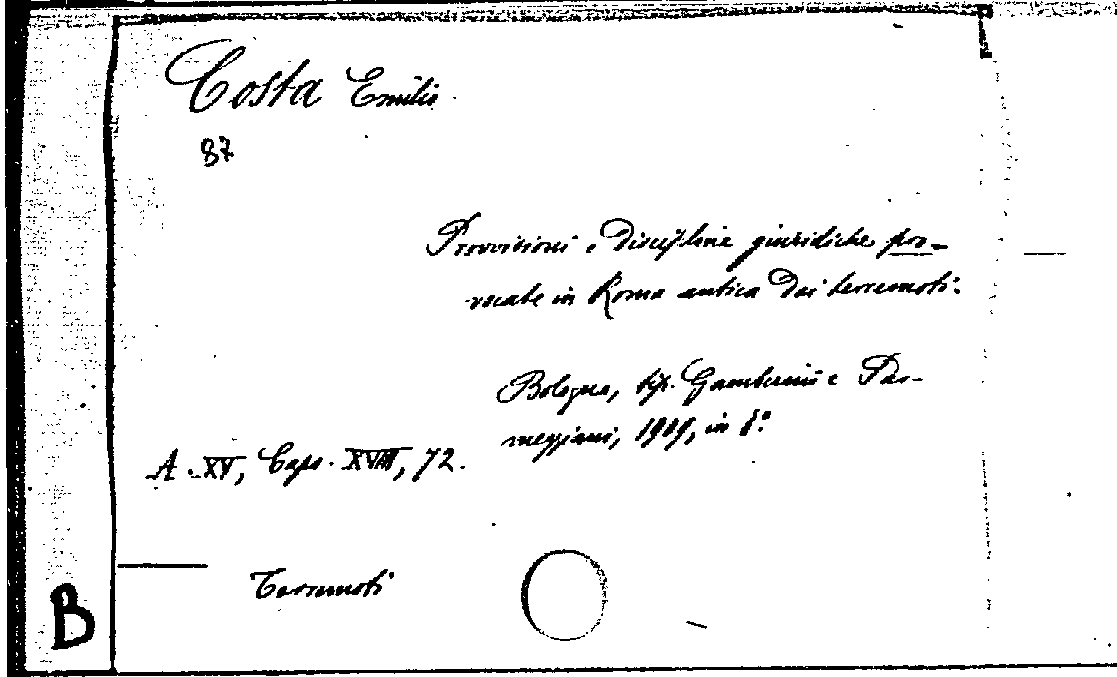 Costa Emilio
87
Provvisioni e discipline giuridiche pro-
vocate in Roma antica dai terremoti.
Bologna, tip. Gamberini e Par-
meggiani, 1909, in 8.°
A. XV, Caps. XVIII, 72.
Terremoti
B